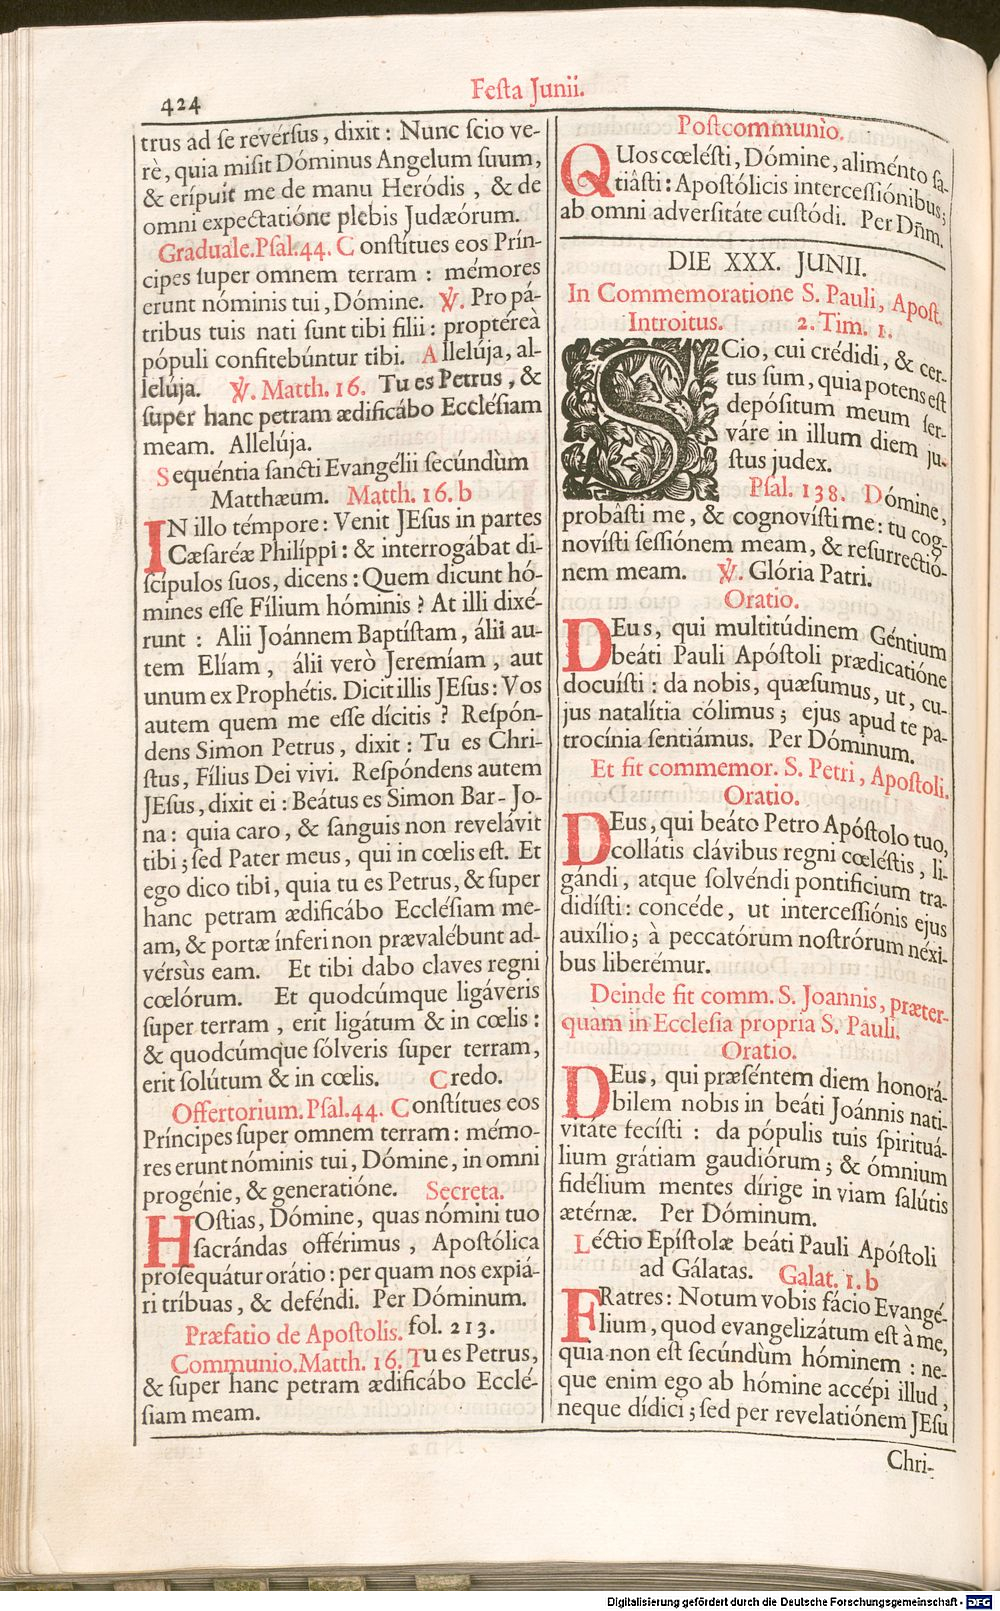 424
Festa Junii.
trus ad se revérsus, dixit: Nunc scio ve-
rè, quia misit Dóminus Angelum suum,
& erípuit me de manu Heródis, & de
omni expectatióne plebis Judæórum.
Graduale. Psal. 44. Constítues eos Prín-
cipes super omnem terram: mémores
erunt nóminis tui, Dómine. ℣. Pro pá-
tribus tuis nati sunt tibi filii: proptéreà
pópuli confitebúntur tibi. Allelúja, al-
lelúja. ℣. Matth. 16. Tu es Petrus, &
super hanc petram ædificábo Ecclésiam
meam. Allelúja.
Sequéntia sancti Evangélii secúndùm
Matthæum. Matth. 16. b
IN illo témpore: Venit JEsus in partes
Cæsaréæ Philíppi: & interrogábat di-
scípulos suos, dicens: Quem dicunt hó-
mines esse Fílium hóminis? At illi dixé-
runt: Alii Joánnem Baptístam, álii au-
tem Elíam, álii verò Jeremíam, aut
unum ex Prophétis. Dicit illis JEsus: Vos
autem quem me esse dícitis? Respón-
dens Simon Petrus, dixit: Tu es Chri-
stus, Fílius Dei vivi. Respóndens autem
JEsus, dixit ei: Beátus es Simon Bar-Jo-
na: quia caro, & sanguis non revelávit
tibi; sed Pater meus, qui in cœlis est. Et
ego dico tibi, quia tu es Petrus, & super
hanc petram ædificábo Ecclésiam me-
am, & portæ ínferi non prævalébunt ad-
vérsùs eam. Et tibi dabo claves regni
cœlórum. Et quodcúmque ligáveris
super terram, erit ligátum & in cœlis:
& quodcúmque sólveris super terram,
erit solútum & in cœlis. Credo.
Offertorium. Psal. 44. Constítues eos
Príncipes super omnem terram: mémo-
res erunt nóminis tui, Dómine, in omni
progénie, & generatióne. Secreta.
HOstias, Dómine, quas nómini tuo
sacrándas offérimus, Apostólica
prosequátur orátio: per quam nos expiá-
ri tríbuas, & deféndi. Per Dóminum.
Præfatio de Apostolis. fol. 213.
Communio. Matth. 16. Tu es Petrus,
& super hanc petram ædificábo Ecclé-
siam meam.
Postcommunio.
QUos cœlésti, Dómine, aliménto sa-
tiâsti: Apostólicis intercessiónibus,
ab omni adversitáte custódi. Per Dñm.
DIE XXX. JUNII.
In Commemoratione S. Pauli, Apost.
Introitus. 2. Tim. 1.
SCio, cui crédidi, & cer-
tus sum, quia potens est
depósitum meum ser-
váre in illum diem ju-
stus judex.
Psal. 138. Dómine,
probâsti me, & cognovísti me: tu cog-
novísti sessiónem meam, & resurrectió-
nem meam. ℣. Glória Patri.
Oratio.
DEus, qui multitúdinem Géntium
beáti Pauli Apóstoli prædicatióne
docuísti: da nobis, quæsumus, ut, cu-
jus natalítia cólimus; ejus apud te pa-
trocínia sentiámus. Per Dóminum.
Et fit commemor. S. Petri, Apostoli.
Oratio.
DEus, qui beáto Petro Apóstolo tuo,
collátis clávibus regni cœléstis, li-
gándi, atque solvéndi pontificium tra-
didísti: concéde, ut intercessiónis ejus
auxílio; à peccatórum nostrórum néxi-
bus liberémur.
Deinde fit comm. S. Joannis, præter-
quam in Ecclesia propria S. Pauli.
Oratio.
DEus, qui præséntem diem honorá-
bilem nobis in beáti Joánnis nati-
vitáte fecísti: da pópulis tuis spirituá-
lium grátiam gaudiórum; & ómnium
fidélium mentes dírige in viam salútis
ætérnæ. Per Dóminum.
Léctio Epístolæ beáti Pauli Apóstoli
ad Gálatas. Galat. 1. b
FRatres: Notum vobis fácio Evangé-
lium, quod evangelizátum est à me,
quia non est secúndùm hóminem: ne-
que enim ego ab hómine accépi illud,
neque dídici; sed per revelatiónem JEsu
Chri-
Digitalisierung gefördert durch die Deutsche Forschungsgemeinschaft - DFG